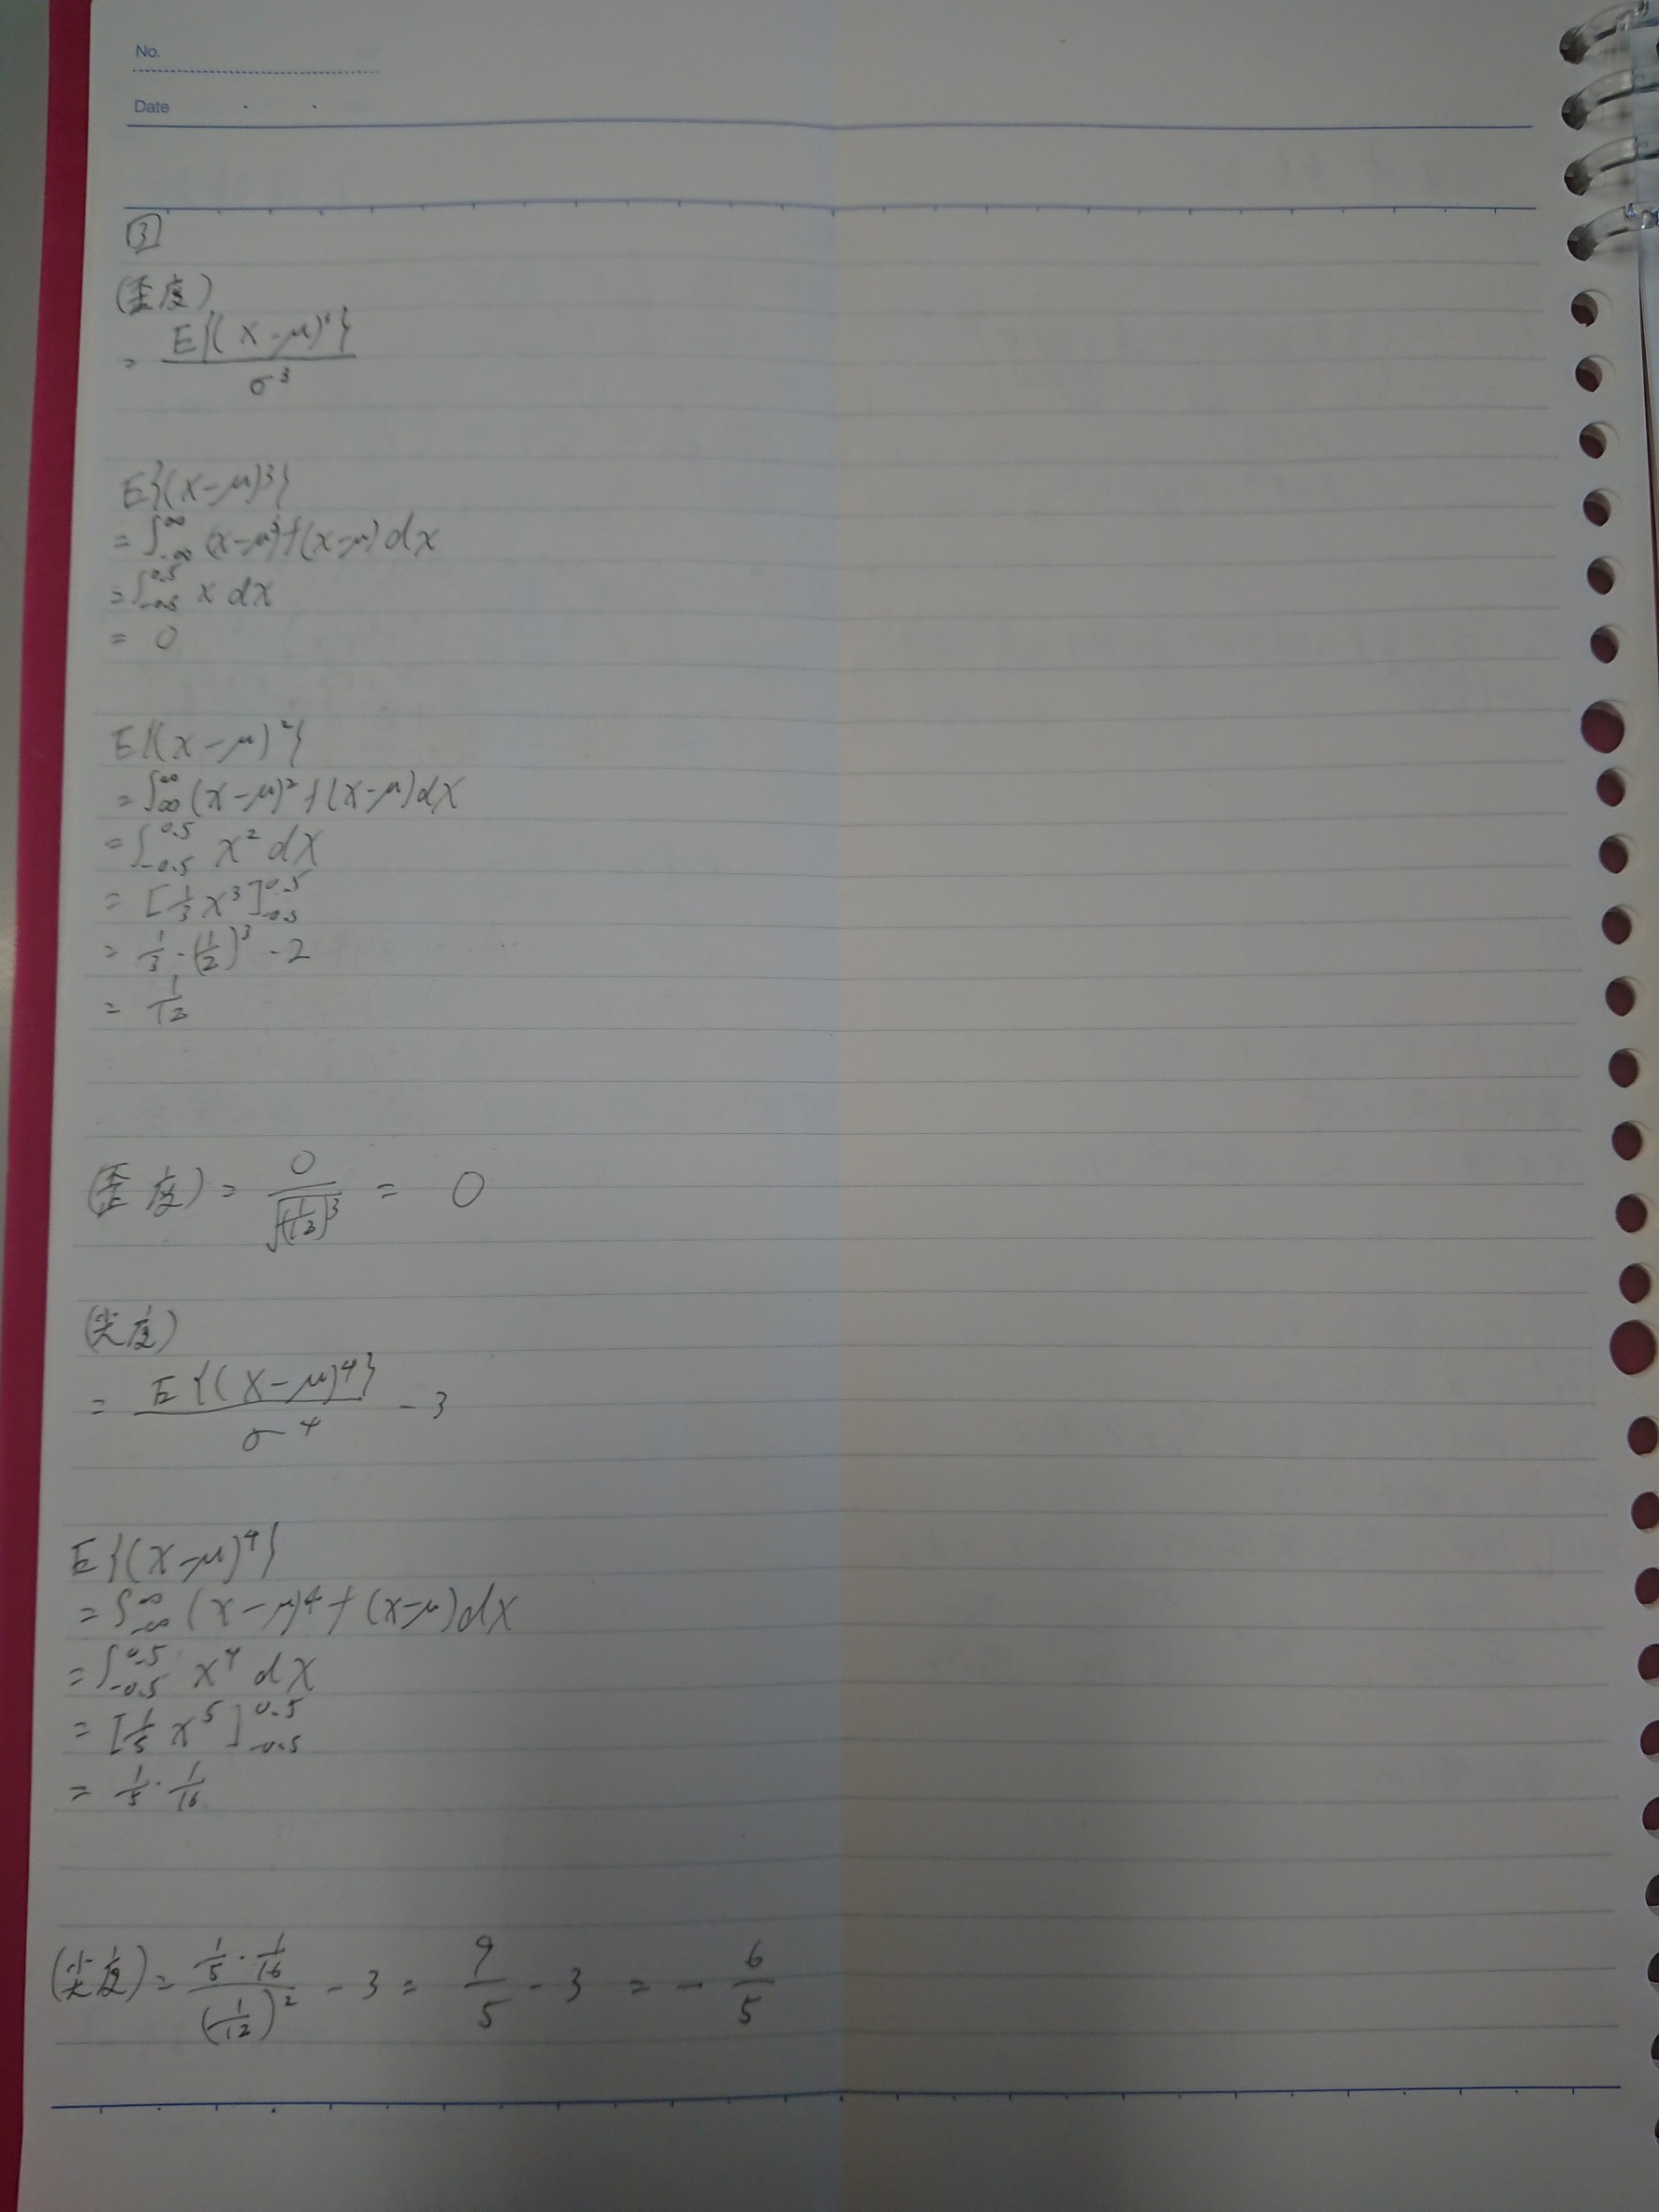 No.
Date . .
3
(歪度)
= E{(X-μ)³} / σ³
E{(X-μ)³}
= ∫_{-∞}^{∞} (x-μ)³f(x-μ)dx
= ∫_{-0.5}^{0.5} x dx
= 0
E{(X-μ)²}
= ∫_{∞}^{∞} (x-μ)²f(x-μ)dx
= ∫_{-0.5}^{0.5} x² dx
= [1/3 x³]_{-0.5}^{0.5}
= 1/3・(1/2)³・2
= 1/12
(歪度) = 0/√(1/12)³ = 0
(尖度)
= E{(X-μ)⁴} / σ⁴ - 3
E{(X-μ)⁴}
= ∫_{-∞}^{∞} (x-μ)⁴f(x-μ)dx
= ∫_{-0.5}^{0.5} x⁴ dx
= [1/5 x⁵]_{-0.5}^{0.5}
= 1/5・1/16
(尖度) = (1/5・1/16) / (1/12)² - 3 = 9/5 - 3 = - 6/5